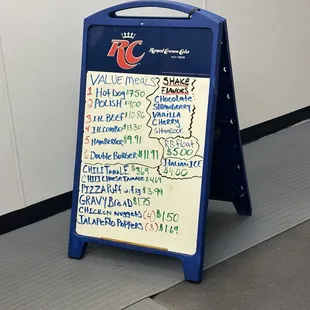 RC
Royal Crown Cola
VALUE MEALS
1 HOT DOG $7.50
2 POLISH $9.00
3 IT. BEEF $10.86
4 IT. COMBO $13.30
5 HAMBURGER $9.91
6 DOUBLE BURGER $11.91
SHAKE
FLAVORS
CHOCOLATE
STRAWBERRY
VANILLA
CHERRY
R.B. float
$5.00
ITALIAN ICE
$4.00
CHILI TAMALE $3.69
CHILI CHEESE TAMALE $4.69
PIZZA PUFF w/ Fry $3.99
GRAVY BREAD $1.75
CHICKEN NUGGETS (4) $1.50
JALAPEÑO POPPERS (3) $1.69